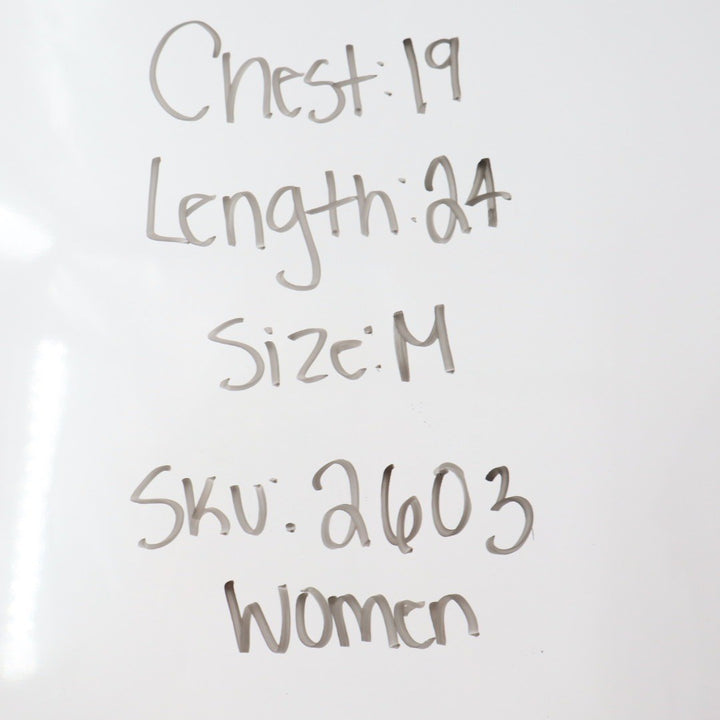 Chest: 19
Length: 24
Size: M
SKU: 2603
Women